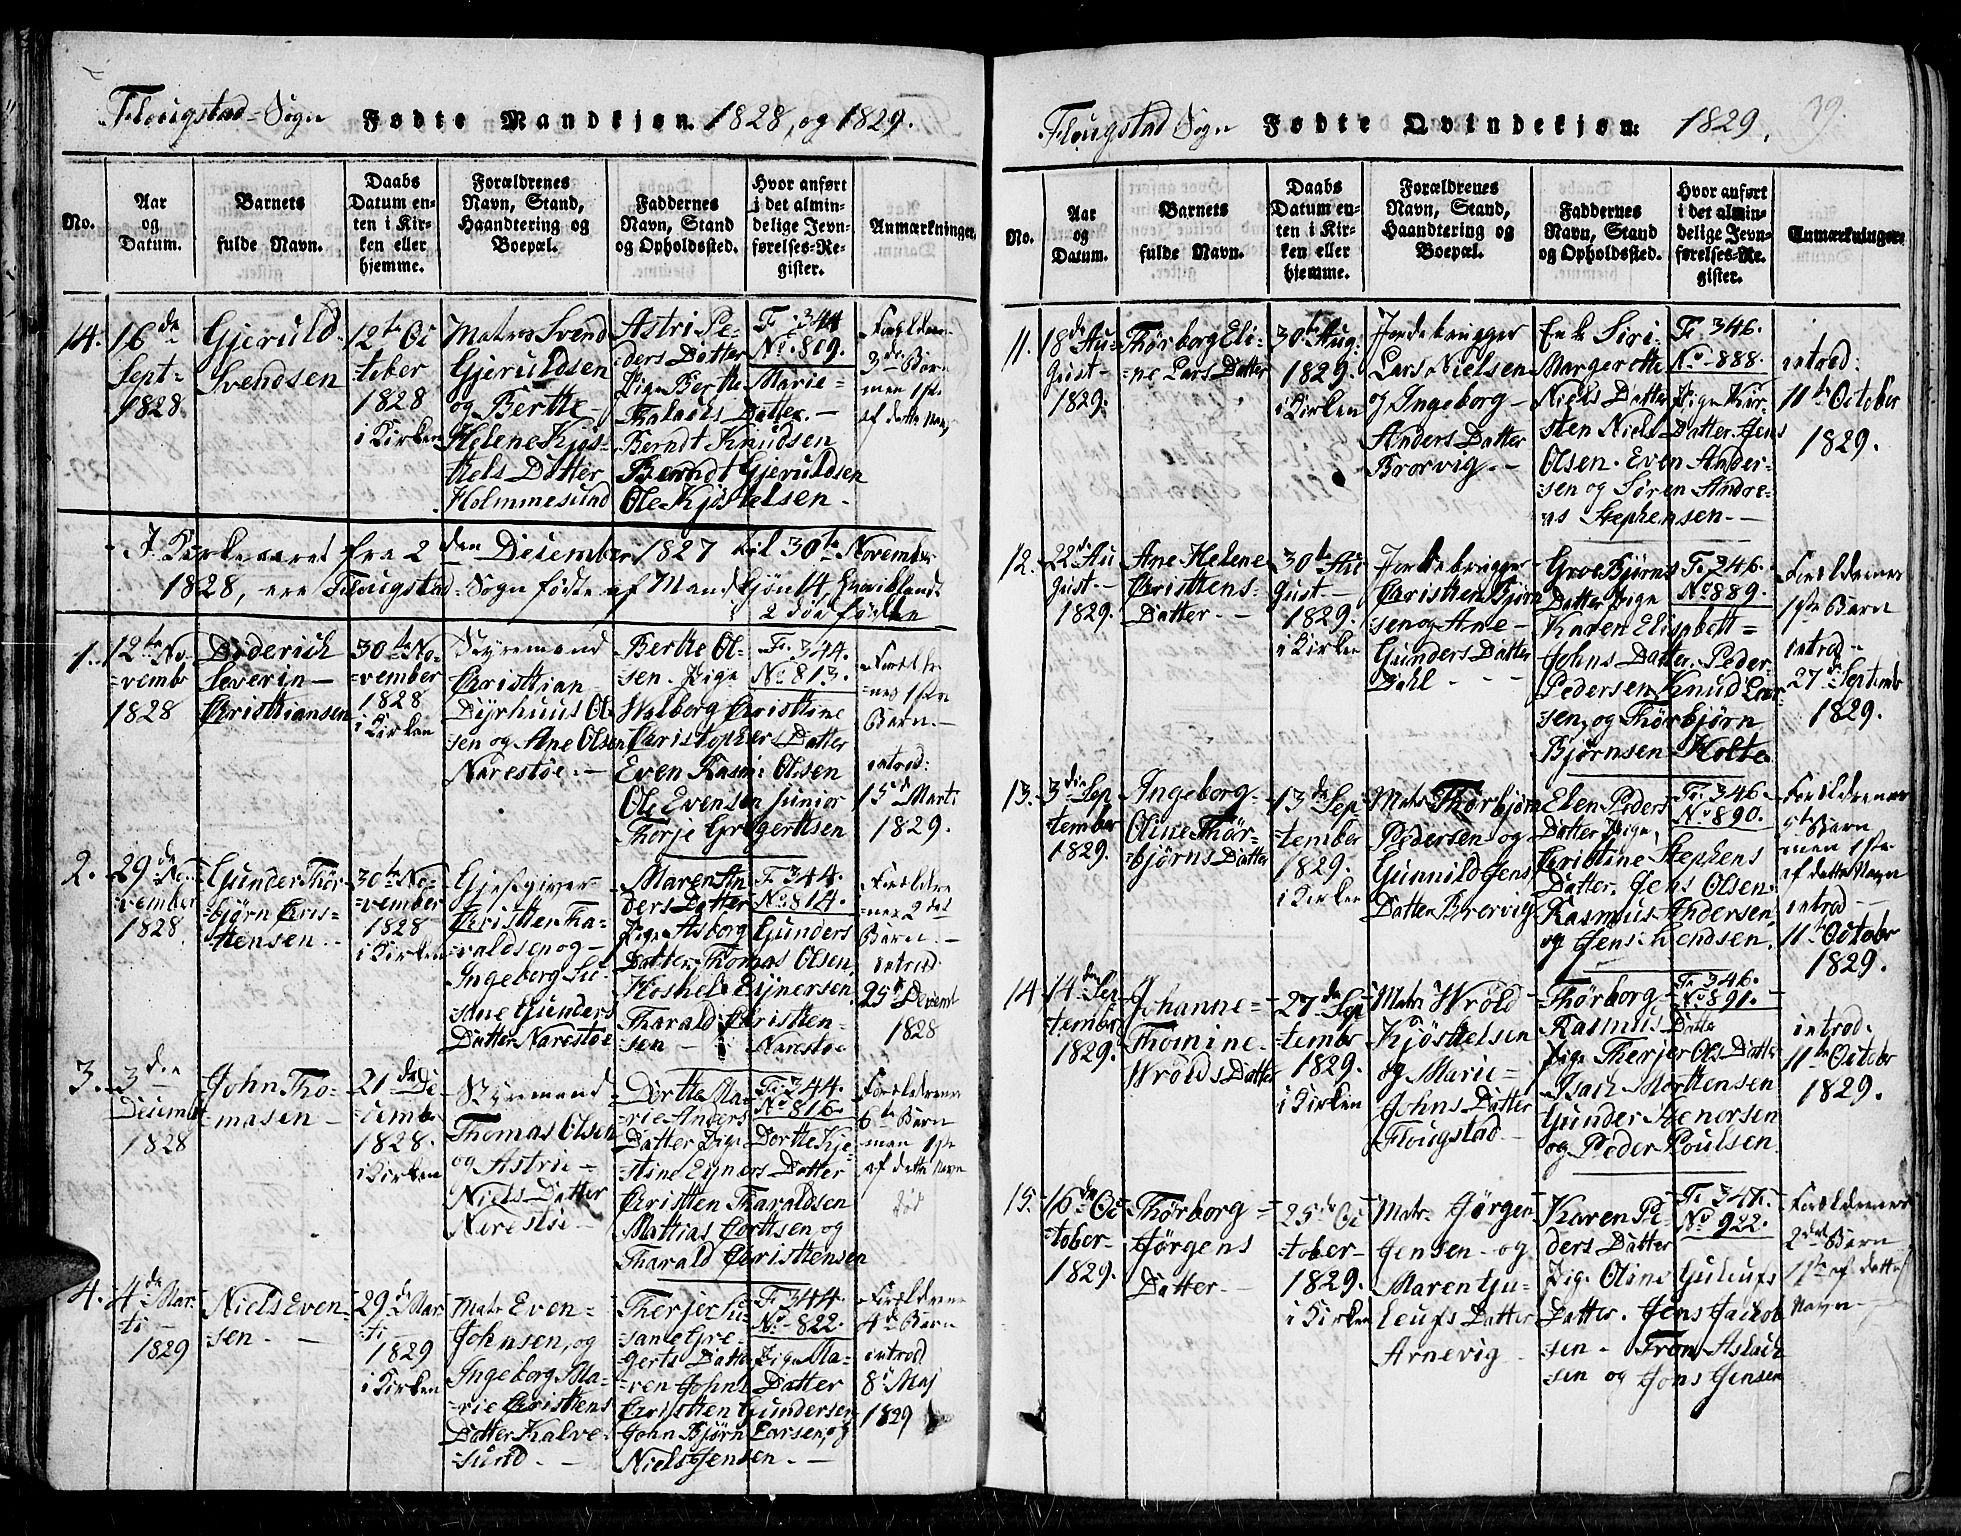 Flougstad Sogn Fødte Mandkjøn. 1828, og 1829.
No.
Aar
og
Datum.
Barnets
fulde Navn.
Daabs
Datum en-
ten i Kir-
ken eller
hjemme.
Forældrenes
Navn, Stand,
Haandtering og
Boepæl.
Faddernes
Navn, Stand
og Opholdssted.
Hvor anført
i det almin-
delige Jevn-
førelses-Re-
gister.
Anmærkninger.
14.
16de
Sept-
1828
Gjeruld-
Svendsen
12te Oc
tober
1828
i Kirken
Matros Svend
Gjeruldsen
og Berthe-
Helene Kjøs-
tels Datter
Holmmesund
Astri Pe-
ders Datter
Pige Berthe Marie=
Datter. -
Berndt Knudsen
Berndt Gjeruldsen
Ole Kjøstelsen-
F. 344
No. 809.
Forældrenes
3de Barn
men 1ste
af dette Navn
I Kirkeaaret fra 2den December 1827 til 30te November
1828, ere Flougstad-Sogn fødte af Mandkjøn 14, hvoriblandt
2 død fødde
1.
12te No
=vemb
1828
Diderich
Severin-
Christiansen
30te No-
=vember
1828
i Kirken
Styrmand
Christian
Dyrhuus Ol
sen og Ane Olsen
Narestøe.-
Berthe Ol-
sen. Pige
Walborg Christine
Christophers Datter
Even Rasm: Olsen
Ole Evensen junior
Thorje Gregertsen
F. 344.
No 813.
Forældre
nes 1ste
Barn.-
introd:
15de Marti
1829.
2.
29de No
vember
1828.
Gunder Thor
=bjørn Chris-
=tensen.-
30te No-
=vember
1828
i Kirken
Gjestgiver-
Christen Tha-
raldsen og-
Ingeborg Su-
sane Gunders
Datter Narestøe
Maren An
ders Datter
Pige Asborg Gunders
Datter, Thomas Olsen,
Eynersen
Tharald Christen-
sen - Narestøe
F. 344.
No 814.
Forældre
nes 2det
Barn.-
introd
25de Decemb
1828
3.
3den
Decemb
1828
John Tho-
masen-
21de De
cember
1828.
i Kirken
Styrmand
Thomas Olsen
og Astrie-
Niels Datter
Narestøe-
Dorthe Ma-
rie Anders
Datter Pige Dorthe Kje-
stine Eyners Datter
Christen Tharaldsen
Mathias Corthsen og
Tharald Christensen
F. 344.
No 816.
Forældrenes
6te Barn
men 1ste
af dette Navn
død
4.
4de Mar
ti-
1829
Niels Even-
sen. -
29de Mar
ti-
1829
i Kirken
Matr Even=
Johnsen, og
Ingeborg Ma-
=rie Christens
Datter Kalve-
sund. -
Therjer Su-
sane Gre-
gerts Datter Pige Ma-
=ren Johns Datter
Christen Gundersen
John Bjørn Larsen, og
Niels Jensen. -
F. 344.
No-822.
Forældrene
4de Barn
introd
8de Maj
1829
Flougstad Sogn Fødte Qvindekjøn: 1829.
39.
No.
Aar
og
Datum.
Barnets
fulde Navn.
Daabs
Datum en-
ten i Kir-
ken eller
hjemme.
Forældrenes
Navn, Stand,
Haandtering og
Boepæl.
Faddernes
Navn, Stand
og Opholdssted.
Hvor anført
i det almin-
delige Jevn-
førelses-Re-
gister.
Anmærkninger.
11.
18de Au-
gust-
1829.
Thørborg Eli-
=ne Lars Datter
30te Aug:
1829.
i Kirken
Jordebrugger
Lars Nielsen
og Ingeborg-
Anders Datter
Brorvig.-
Enk Siri-
Margerethe
Niels Datter, Pige Kir-
sten Niels Datter. Jens
Olsen. Even Ander-
sen og Søren Andre-
as Stephensen.-
F. 346.
No-888.
introd:
11te October
1829.
12.
22de Au
gust-
1829.
Ane Helene
Christens-
Datter.-
30te Au
gust-
1829.
i Kirken
Jordebrugger
Christen Bjørn
sen og Ane-
Gunders Datter
Dahl - - -
Groe Bjørns
Datter Pige
Karen Elisabett=
Johns Datter. Peder
Pedersen, Knud Lar
sen, og Thorbjørn
Bjørnsen Holte
F. 346.
No 889.
Forældrenes
1ste Barn
introd-
27de Septemb
1829.
13.
3den Sep
tember
1829.
Ingeborg-
Oline Thør-
bjørns Datter
13de Sep
=tember
1829.
i Kirken
Matr Thorbjørn
Pedersen og
Gunnild Jens
Datter Brervig
Elen Peders
Datter Pige,
Christine Stephens
Datter. Jens Olsen
Rasmus Andersen
og Jens Svendsen.
F. 346.
No 890.
Forældrenes
5te Barn
men 1ste
af dette Navn
introd-
11te October
1829.
14
14de Sep
tember
1829.
Johanne=
Thomine-
Wrolds Datter
27de Sep
tember
1829.
i Kirken
Matr Wrold-
Kjøstelsen
og Marie-
Johns Datter
Flougstad-
Thørborg
Rasmus Datter
Pige Therjer Ols Datter
Isach Morttensen
Gunder Stenersen
og Peder Poulsen
F. 346.
No 891.
introd.
11te Octobr
1829.
15.
16de Oc
tober-
1829.
Thørborg-
Jørgens
Datter-
25de Oc
=tober-
1829.
i Kirken
Matr. Jørgen
Jensen- og
Maren Gu-
leufs Datter
Arnevig
Karen Pe-
ders Datter
Pige Oline Guleufs
Datter. Jens Jacob
sen - Tron Aslach
sen og Jens Jensen
F. 347.
No 922.
Forældrenes
2det Barn
1ste af dette
Navn-